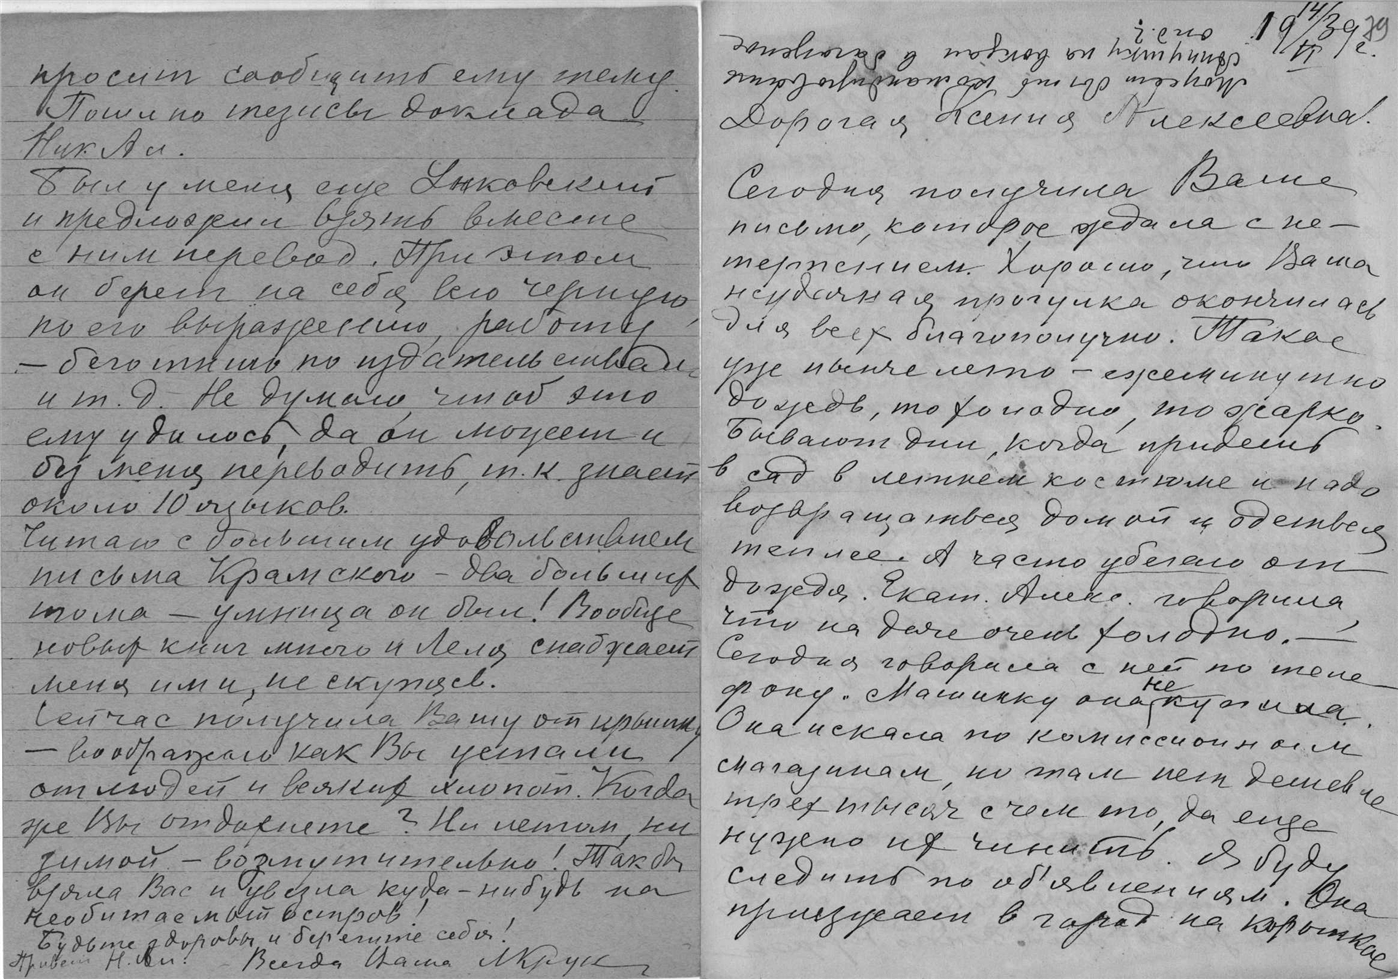 19 14/VI 39 г.
79
Дорогая Ксения Алексеевна!
Сегодня получила Ваше
письмо, которое ждала с не-
терпением. Хорошо, что Ваша
неудачная прогулка окончилась
для всех благополучно. Такое
уже нынче лето – ежеминутно
дождь, то холодно, то жарко.
Бывают дни, когда придешь
в сад в летнем костюме и надо
возвращаться домой и одеться
теплее. А часто убегаю от
дождя. Екат. Алекс. говорила,
что на даче очень холодно. –
Сегодня говорила с ней по теле-
фону. Машинку она не купила.
Она искала по комиссионным
магазинам, но там нет дешевле
трех тысяч с чем то, да еще
нужно их чинить. Я буду
следить по об'явлениям. Она
приезжает в город на короткое
Может быть
Аннушку на вокзал в
это?
просит сообщить ему тему.
Пошлю тезисы доклада
Ник Ал.
Был у меня еще Унковский
и предложил взять вместе
с ним перевод. При этом
он берет на себя всю черную,
по его выражению, работу
– беготню по издательствам
и т.д. Не думаю, чтоб это
ему удалось, да он может и
без меня переводить, т.к. знает
около 10 языков.
Читаю с большим удовольствием
письма Крамского – два больших
тома – умница он был! Вообще
новых книг много и Леля снабжает
меня ими, не скупясь.
Сейчас получила Вашу открытку
– воображаю как Вы устали
от людей и всяких хлопот. Когда
же Вы отдохнете? Ни летом, ни
зимой – возмутительно! Так бы
взяла Вас и увезла куда-нибудь на
необитаемый остров!
Будьте здоровы и берегите себя!
Привет Н. Ал. Всегда Ваша МКрук